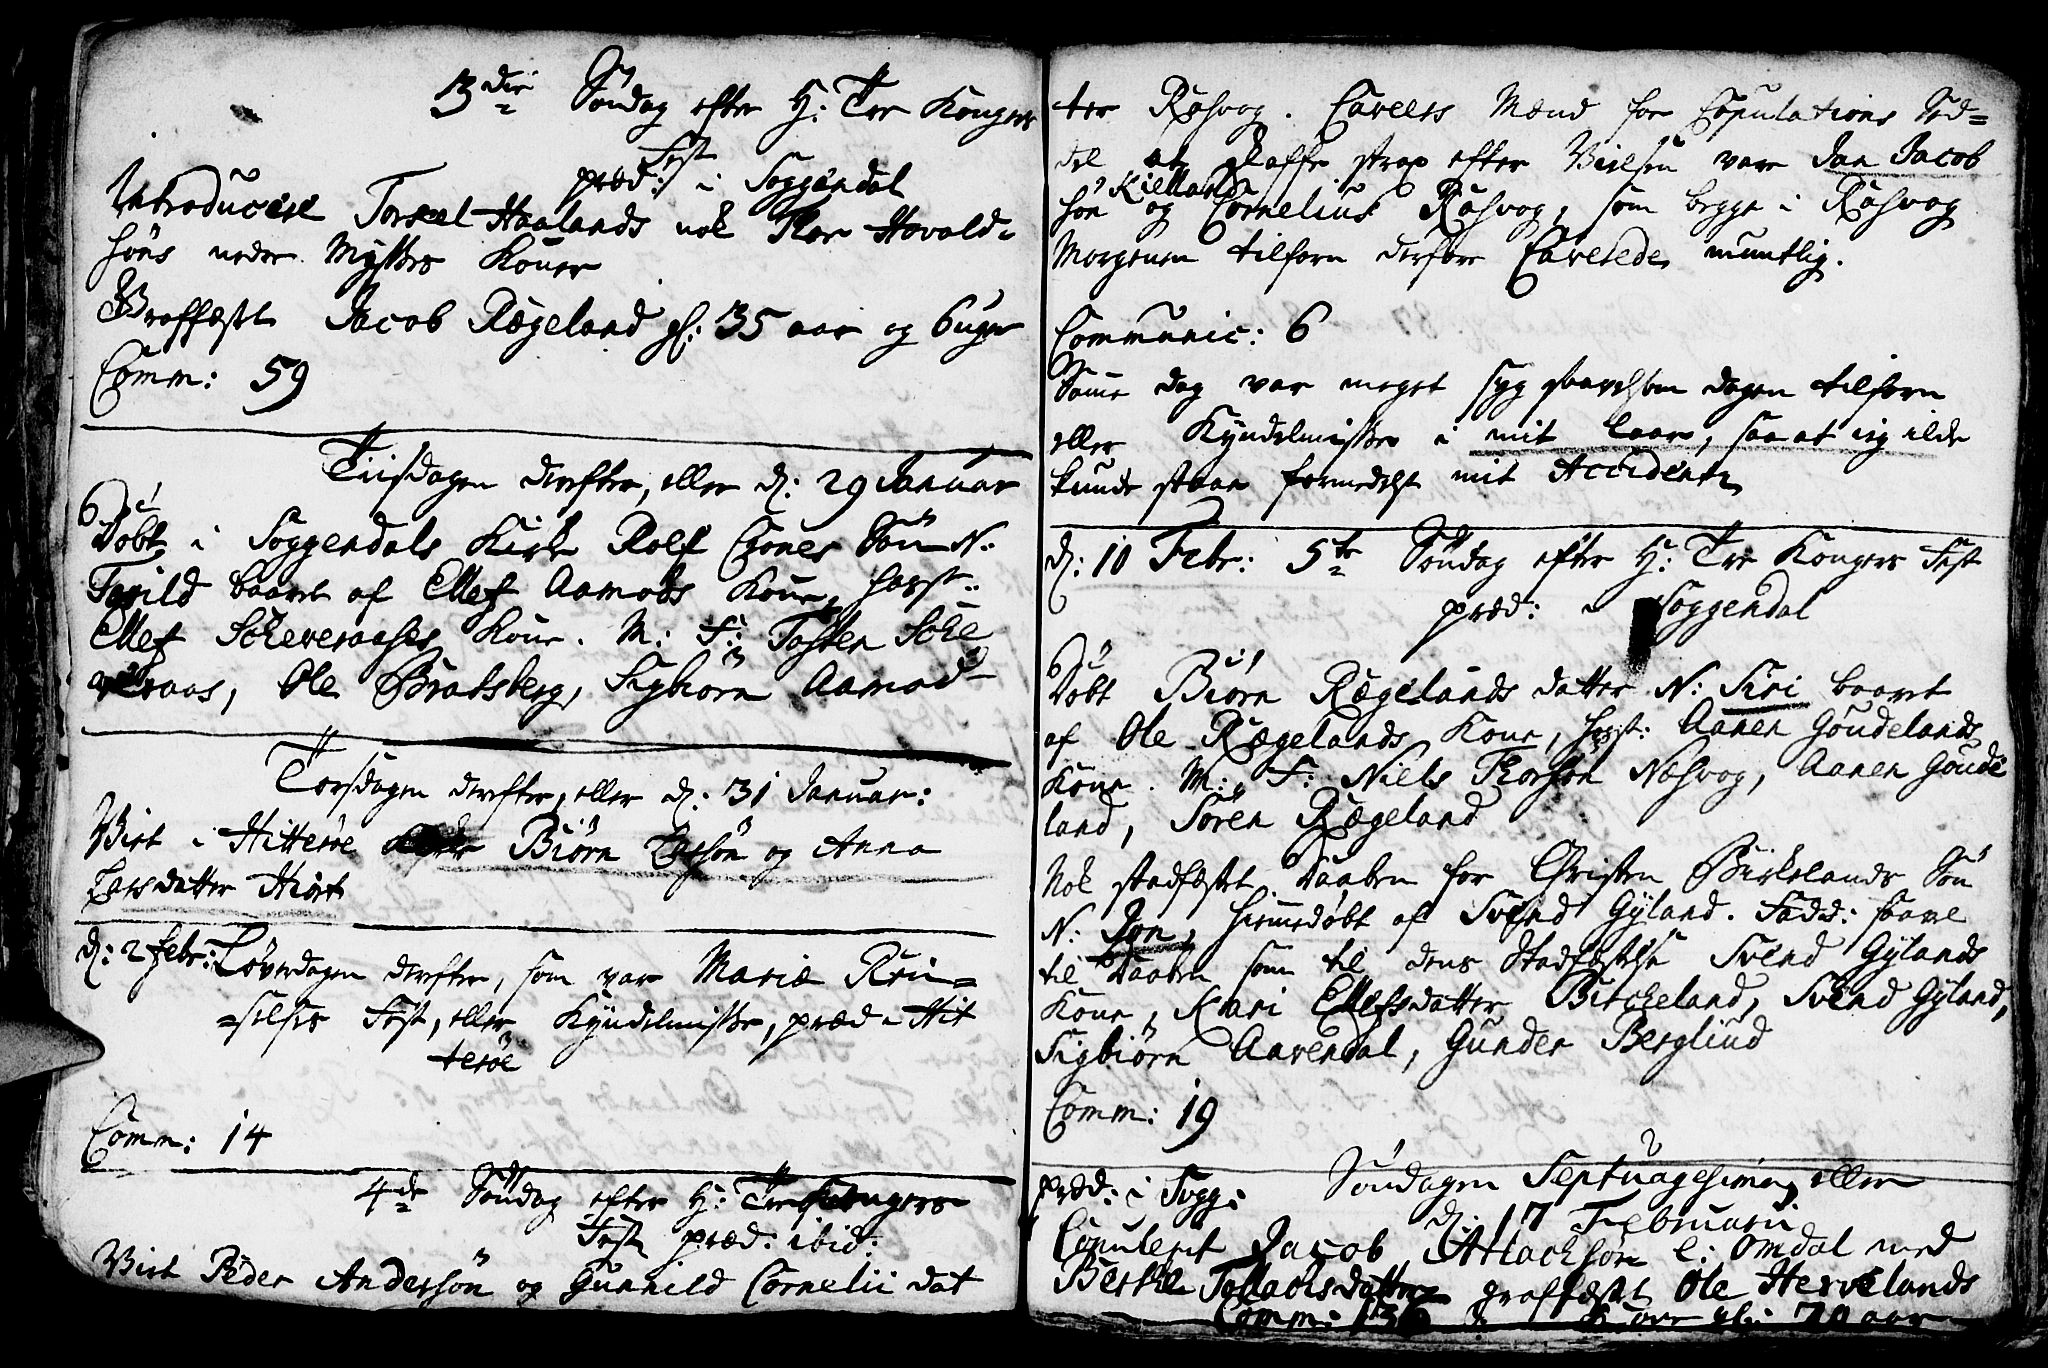 3die Søndag efter H: Tre Kongers
Fest
præd: i Soggendal
Introducert Torkel Haalands nok Thor Hovald-
søns nedre Mysses Koner
Graffæstet Jacob Rægeland gl: 35 aar og 6 uger
Comm: 59
Tiisdagen derefter, eller d: 29 Januar
Døbt i Soggendals Kirke Rolf Egenes Søn N:
Tarild baaret af Ellef Aamods Kone, hosst:
Ellef Scheveraases Kone. M: F: Tosten Sche
veraas, Ole Bratsberg, Sigbiørn Aamod
Torsdagen derefter, eller d: 31 Januar:
Viet i Hitterøe Biørn og Anna
Larsdatter Hiort
d: 2 Febr: Løverdagen derefter, som var Mariæ Ren-
selses Fest, eller Kyndelmisse, præd i Hit
terøe
Comm: 14
4de Søndag efter H: Tre Kongers
Fest præd: ibid:
Viet Peder Andersøn og Gunnild Cornelii dat
ter Rasvog. Caveers Mænd for Copulations Sed=
del at skaffe strax efter Vielsen var Jan Jacob
søn Kielland og Cornelius Rasvog, som begge i Rasvog
Morgenen tilforn derfore Caverede muntlig.
Communic: 6
Samme dag var meget syg saavelsom dagen tilforn
eller Kyndelmisse i mit Laar, saa at ieg ilde
kunde staae formedelst mit Accidente
d: 10 Febr: 5te Søndag efter H: Tre Kongers Fest
præd: i Soggendal
Døbt Biørn Rægelands datter N: Siri baaret
af Ole Rægelands Kone, hosst: Aanen Goudelands
Kone. M: F: Niels Thorsøn Næsvog, Aanen Goude
land, Søren Rægeland
Nok stadfæstet Daaben for Christen Birkelands Søn
N: Jon, hiemmedøbt af Svend Gyland. Fadd: saavel
til Daaben som til dens Stadfæstelse Svend Gylands
Kone, Kari Ellefsdatter Birckeland, Svend Gyland,
Sigbiørn Aavendal, Gunder Bergliud
Comm: 19
præd: i Sogg: Søndagen Septuagesima, eller
d: 17 Februarii
Copuleret Jacob Atlachsøn e: Omdal med
Berthe Tollachsdatter graffæstet Ole Hervelands
Comm: 136 Kone gl: 70 aar